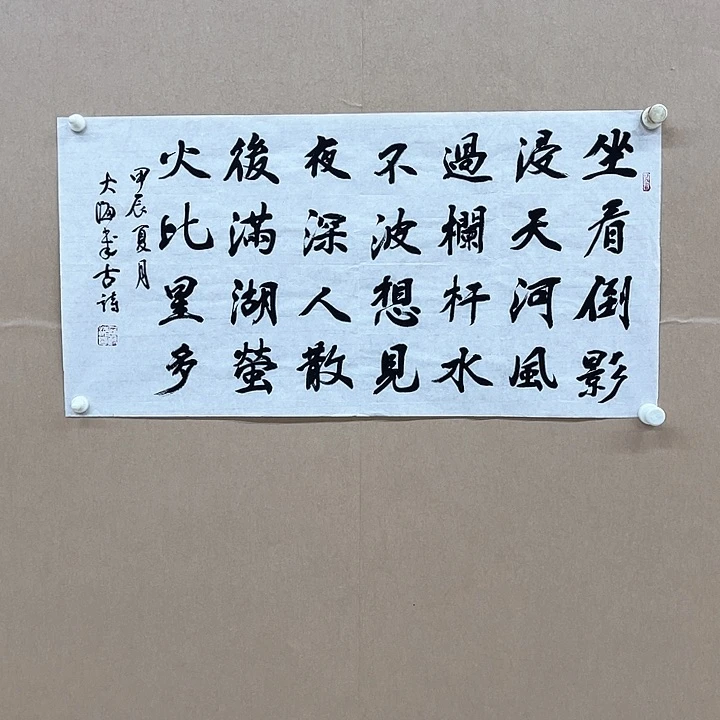 坐看倒影
浸天河風
過欄杆水
不波想見
夜深人散
後滿湖螢
火比星多
甲辰夏月
大海書古詩